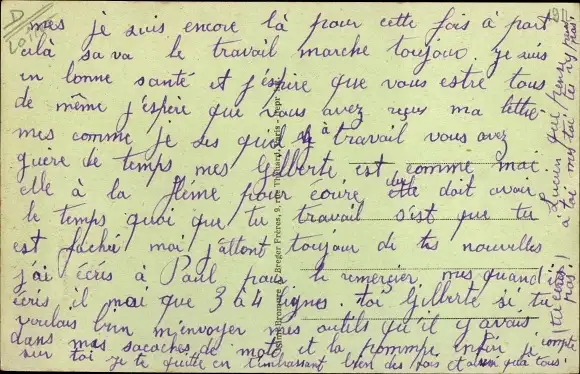 D
mes je suis encore là pour cette fois à part
cela sa va le travail marche toujour je suis
en bonne santé et j'éspère que vous estre tous
de même j'éspere que vous avez reçus ma lettre
mes comme je ses quel à travail vous avez
guère de temps mes Gilberte est comme moi
elle à la flême pour écrire elle doit avoir
le temps quoi que tu travail s'est que tu
est faché moi j'attent toujour de tes nouvelles
j'ai écris à Paul pour le remercier mes quand il
écris il mai que 3 à 4 lignes. toi Gilberte si tu
voulais bien m'envoyer mes outils qu'il y avais
dans mes sacoches de moto et la pommpe enfin je compte
sur toi je te quitte en t'embrassant bien des fois et qu'à tous.
Lucien que pense
à toi mes toi tu n'y
pas!
Breger Frères, 9, rue Thénard, Paris